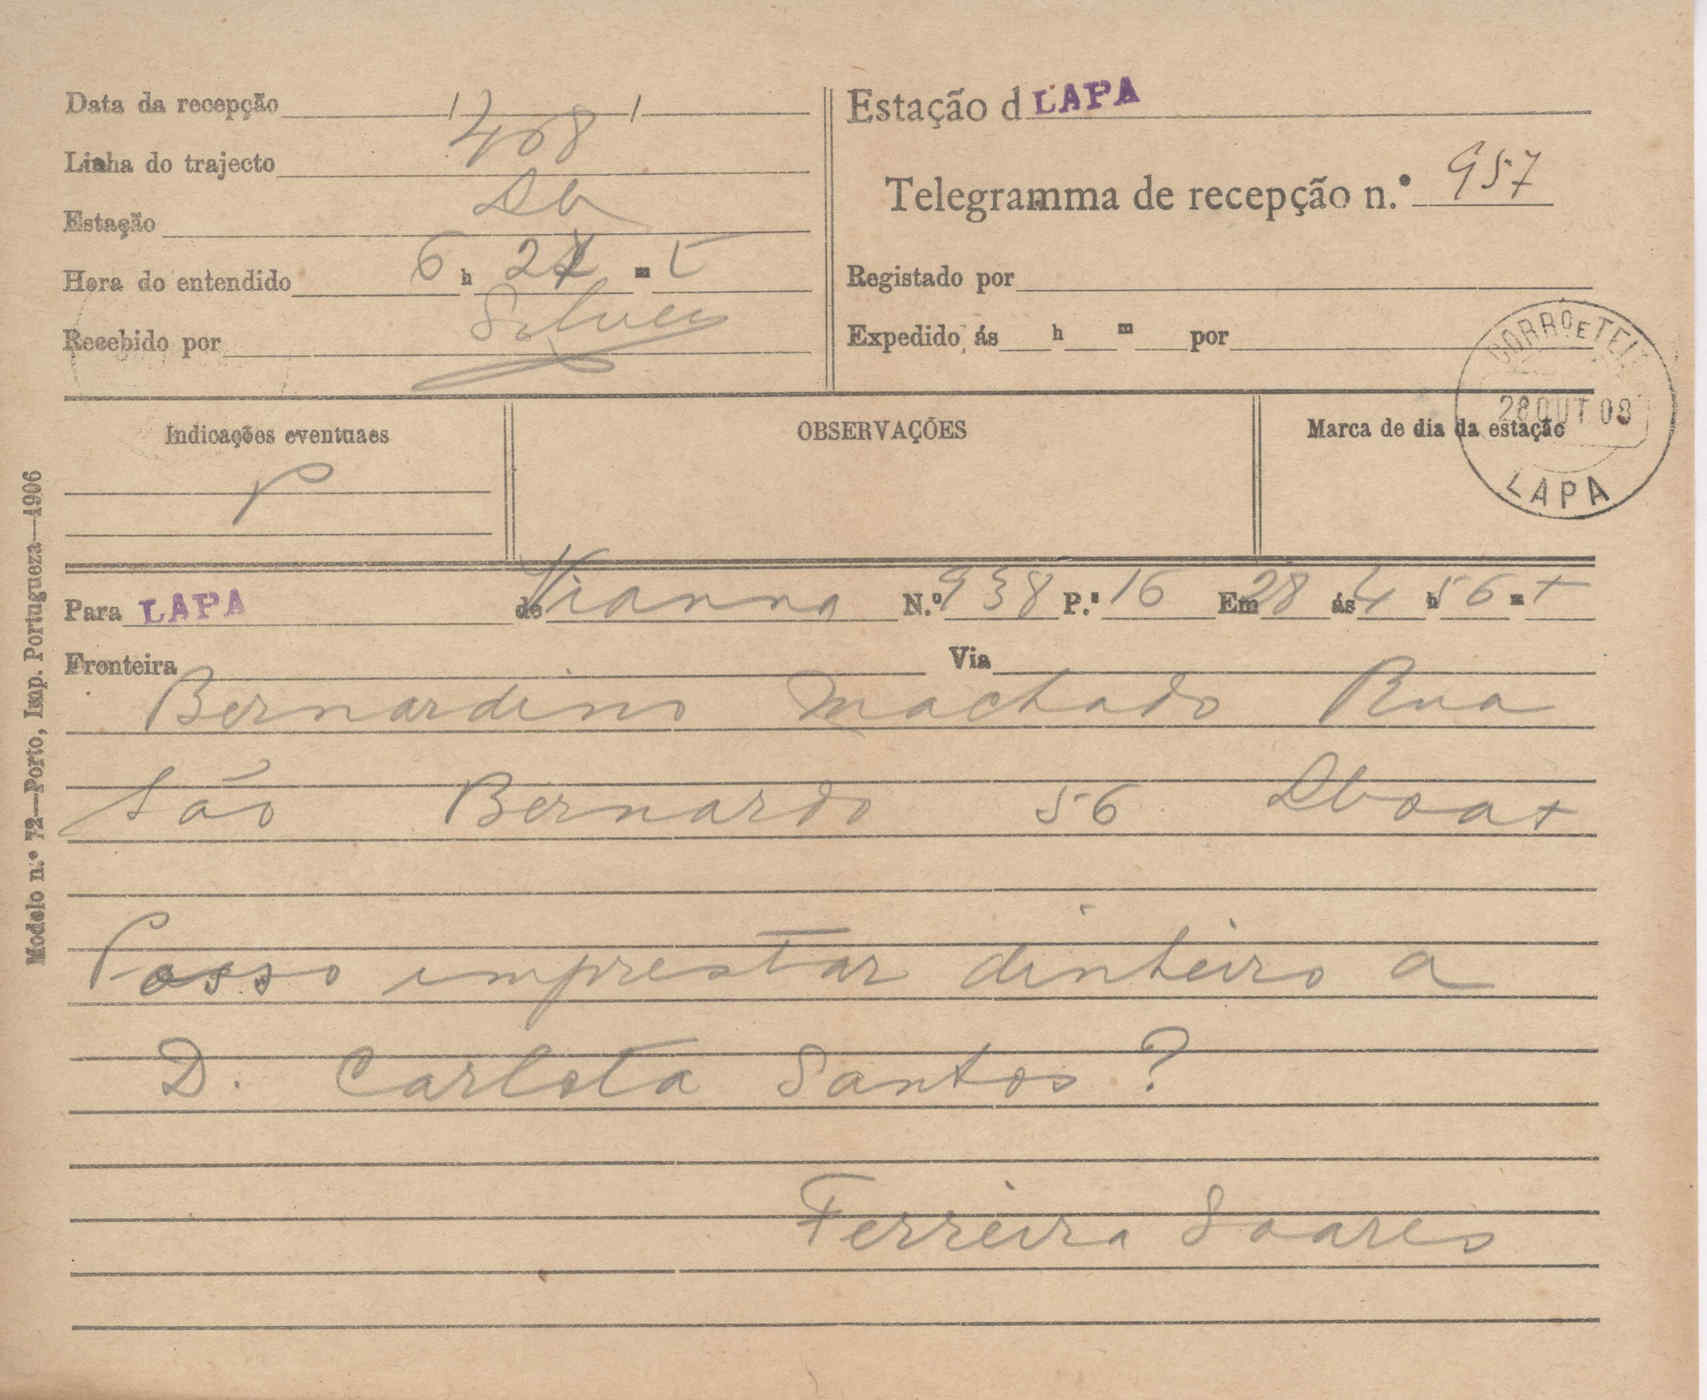 Data da recepção / /
Linha do trajecto 408
Estação
Hora do entendido 6 h 2 m t
Recebido por
Estação d LAPA
Telegramma de recepção n.º 957
Registado por
Expedido ás h m por
CORRO E TEL
28 OUT 08
LAPA
Indicações eventuaes
P
OBSERVAÇÕES
Marca de dia da estação
Para LAPA de Vianna N.º 938 P.ª 16 Em 28 ás 4 h 56 m t
Fronteira Via
Bernardino Machado Rua
São Bernardo 56 Lboa +
Posso imprestar dinheiro a
D. Carlota Santos ?
Ferreira Soares
Modelo n.º 72—Porto, Imp. Portugueza—1906